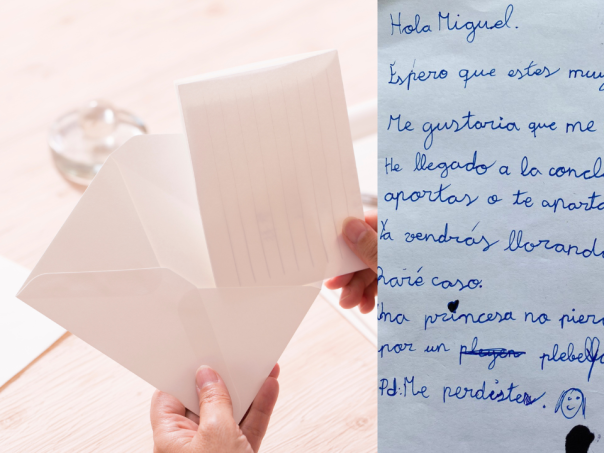 Hola Miguel.
Espero que estes muy
Me gustaria que me
He llegado a la concl
aportas o te aparta
Ya vendrás llorand
haré caso.
Una princesa no pier
por un plebe
Pd: Me perdistes.